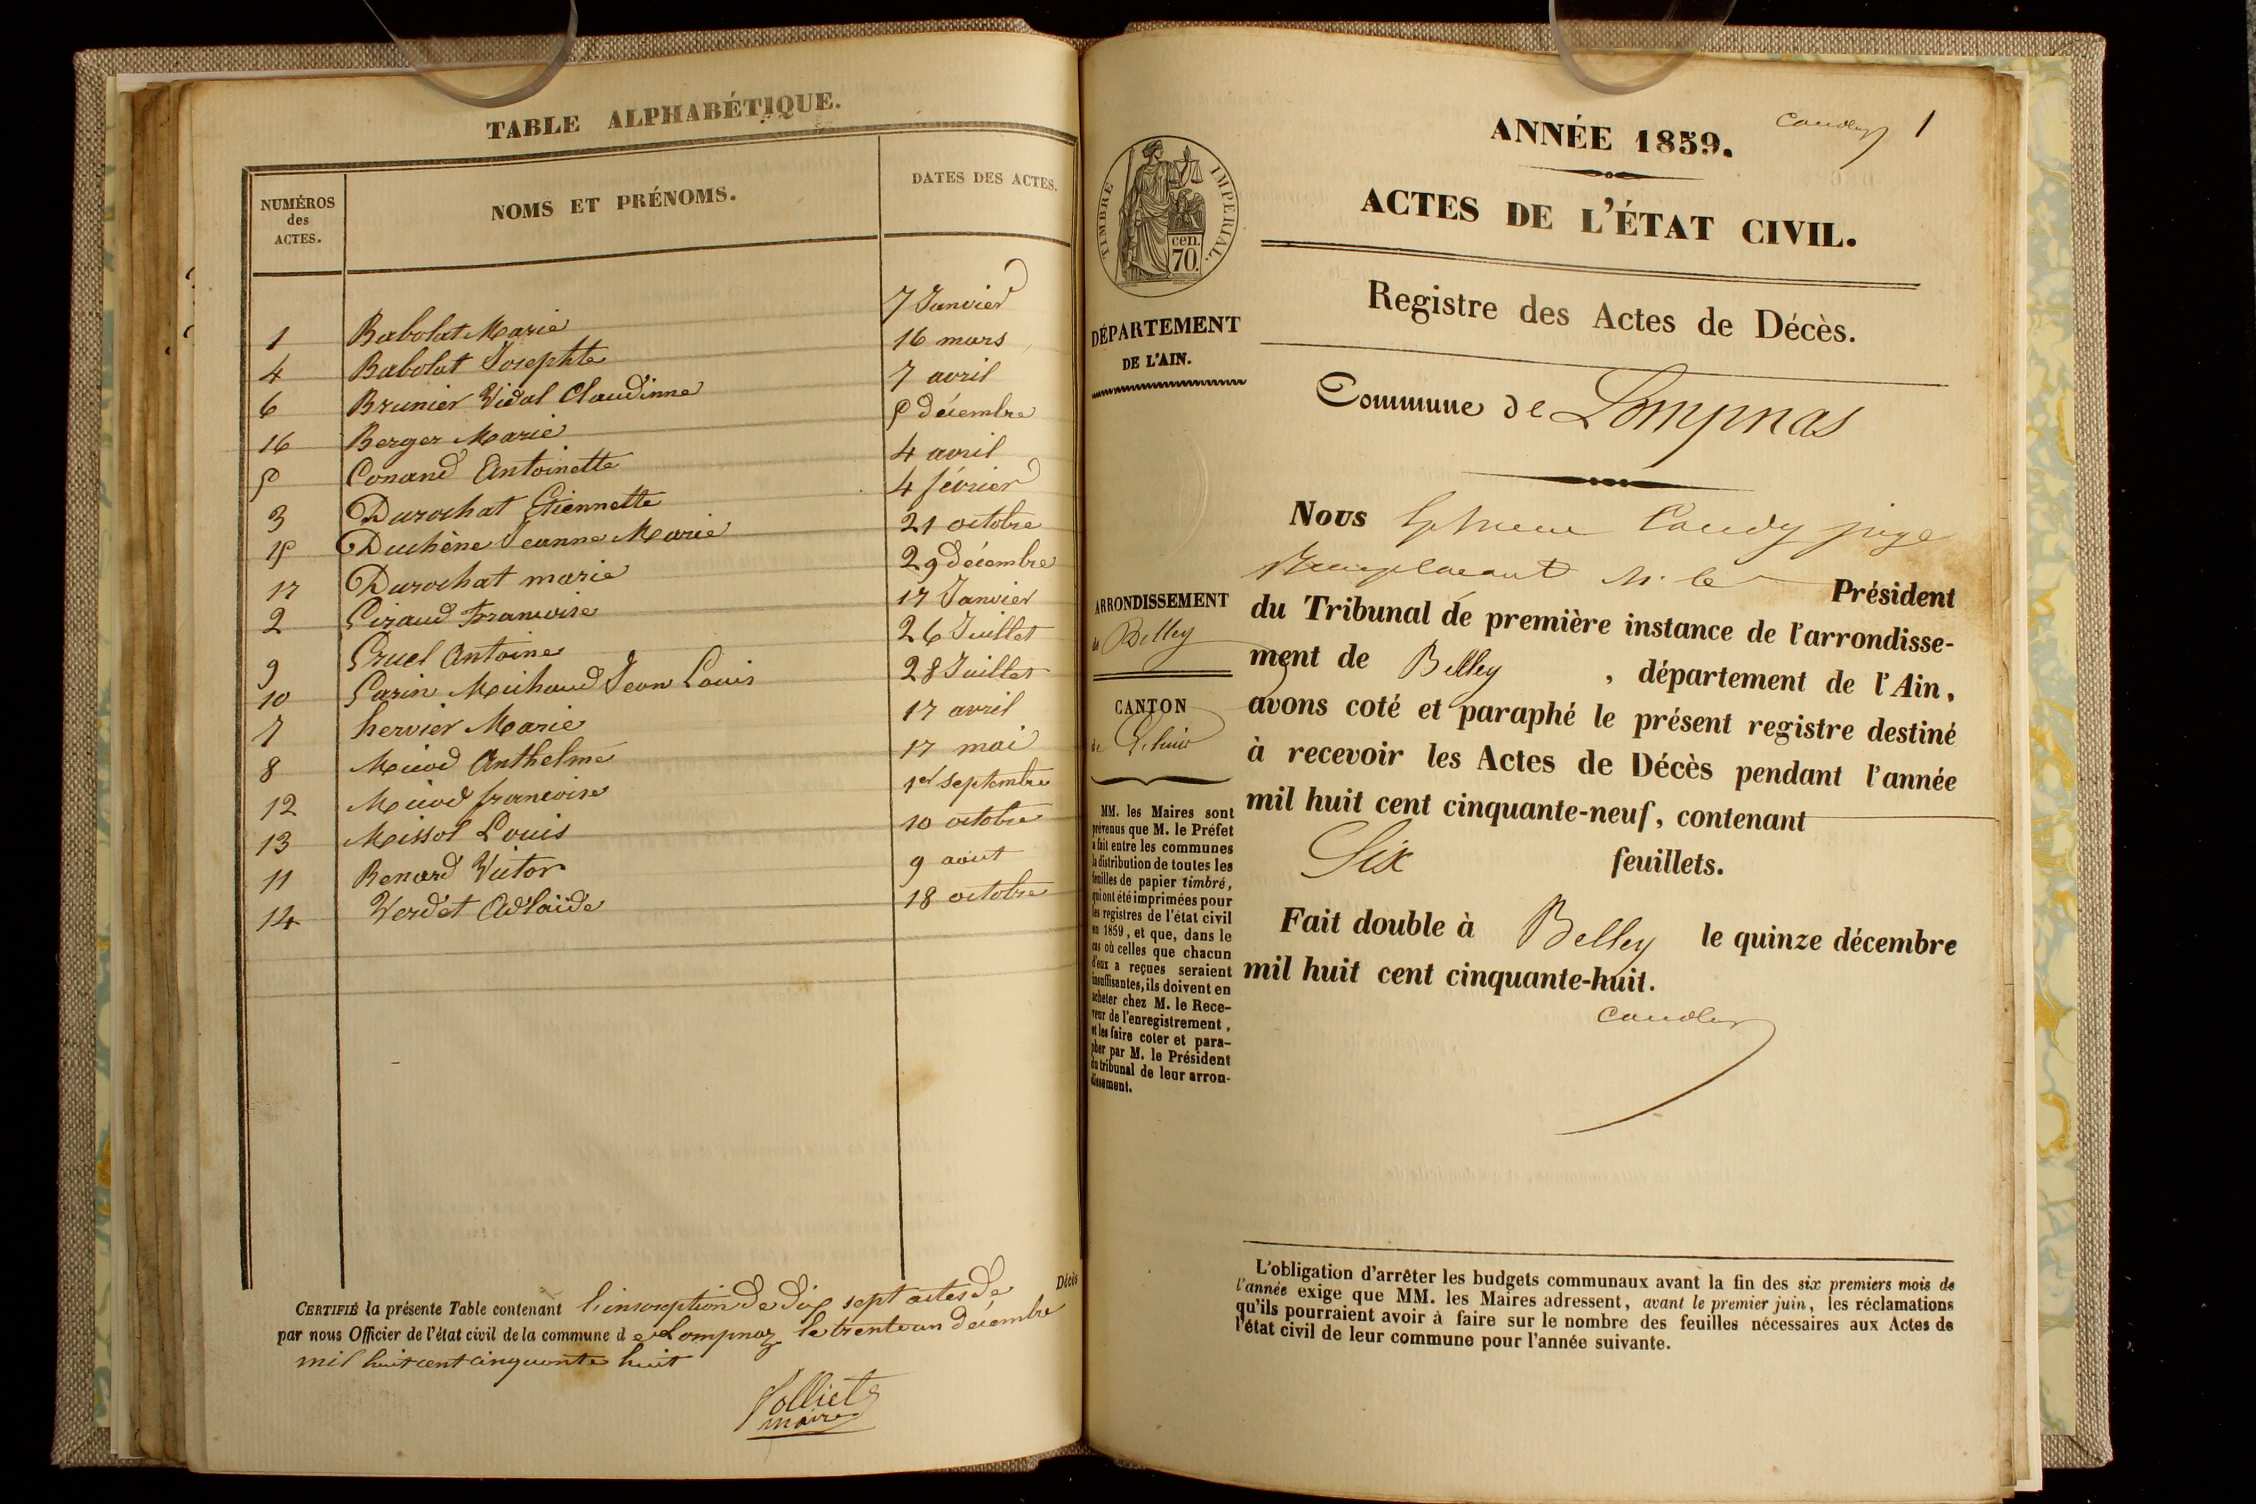 TABLE ALPHABÉTIQUE.
NUMÉROS des ACTES. NOMS ET PRÉNOMS. DATES DES ACTES.
1 Babolat Marie 7 Janvier
4 Babolat Josephte 16 mars
6 Brunier Vidal Claudinne 7 avril
16 Berger Marie 5 décembre
5 Conand Antoinette 4 avril
3 Durochat Etiennette 4 février
15 Duchène Jeanne Marie 21 octobre
17 Durochat marie 29 décembre
2 Giraud Francoise 17 Janvier
9 Gruel Antoine 26 Juillet
10 Garin Michaud Jean Louis 28 Juillet
7 hervier Marie 17 avril
8 Micod Anthelme 17 mai
12 Micod francoise 1er septembre
13 Missol Louis 10 octobre
11 Renard Victor 9 aout
14 Verdet Adlaïde 18 octobre
CERTIFIÉ la présente Table contenant l'inscription de dix sept actes de Décès
par nous Officier de l'état civil de la commune de Lompnaz le trente un décembre
mil huit cent cinquante huit
Jolliet
maire
Caudy 1
ANNÉE 1859.
ACTES DE L'ÉTAT CIVIL.
TIMBRE IMPERIAL.
cen.
70.
Registre des Actes de Décès.
DÉPARTEMENT
DE L'AIN.
Commune de Lompnas
Nous Caudy juge
remplacant M. le Président
du Tribunal de première instance de l'arrondisse-
ment de Belley, département de l'Ain,
avons coté et paraphé le présent registre destiné
à recevoir les Actes de Décès pendant l'année
mil huit cent cinquante-neuf, contenant
Six feuillets.
Fait double à Belley le quinze décembre
mil huit cent cinquante-huit.
Caudy
ARRONDISSEMENT
de Belley
CANTON
de Lhuis
MM. les Maires sont
prévenus que M. le Préfet
a fait entre les communes
la distribution de toutes les
feuilles de papier timbré,
qui ont été imprimées pour
les registres de l'état civil
en 1859, et que, dans le
cas où celles que chacun
d'eux a reçues seraient
insuffisantes, ils doivent en
acheter chez M. le Rece-
veur de l'enregistrement,
et les faire coter et para-
pher par M. le Président
du tribunal de leur arron-
dissement.
L'obligation d'arrêter les budgets communaux avant la fin des six premiers mois de
l'année exige que MM. les Maires adressent, avant le premier juin, les réclamations
qu'ils pourraient avoir à faire sur le nombre des feuilles nécessaires aux Actes de
l'état civil de leur commune pour l'année suivante.